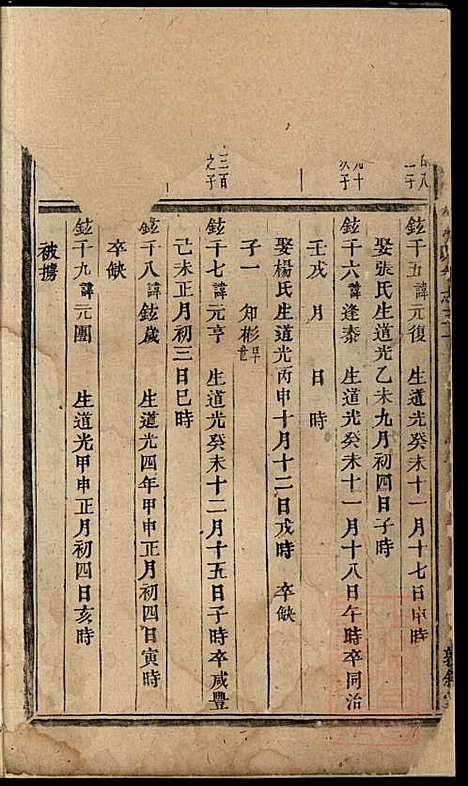 鉉千五諱元復 生道光癸未十一月十七日申時
娶張氏生道光乙未九月初四日子時
九十
次子
鉉千六諱逢泰 生道光癸未十一月十八日午時卒同治
壬戌 月 日 時
娶楊氏生道光丙申十月十二日戌時 卒缺
子一 知彬早世
三百
之子
鉉千七諱元亨 生道光癸未十二月十五日子時卒咸豐
己未正月初三日巳時
鉉千八諱鉉歲 生道光四年甲申正月初四日寅時
卒缺
鉉千九諱元團 生道光甲申正月初四日亥時
被擄